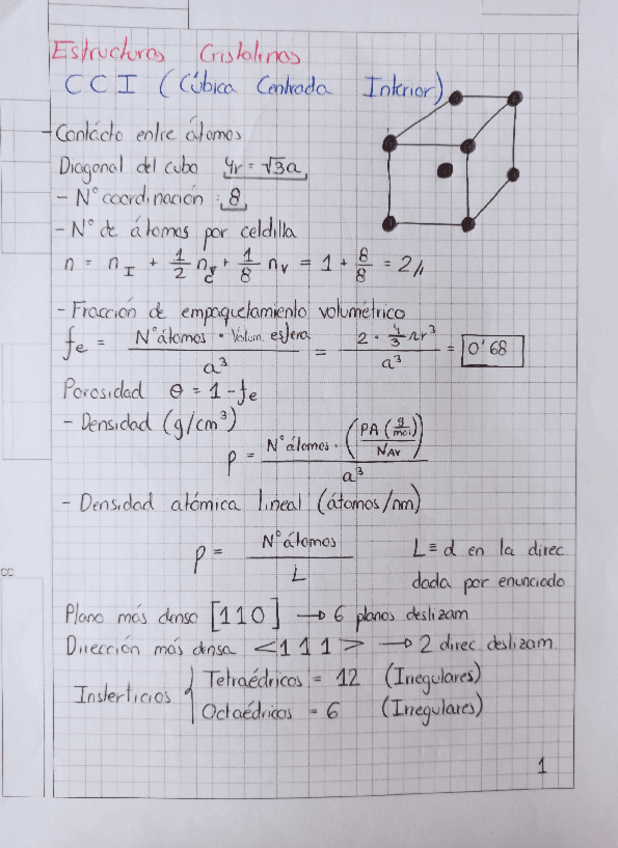 Estructuras Cristalinas
CCI (Cúbica Centrada Interior)
- Contácto entre átomos
Diagonal del cubo 4r = √3a
- N° coordinación : 8
- N° de átomos por celdilla
n = n_I + 1/2 n_C + 1/8 n_V = 1 + 8/8 = 2//
- Fracción de empaquetamiento volumétrico
fe = (N° átomos · Volum. esfera)/a³ = (2 · 4/3 πr³)/a³ = 0'68
Porosidad θ = 1 - fe
- Densidad (g/cm³)
ρ = (N° átomos · (PA (g/mol)/N_AV))/a³
- Densidad atómica lineal (átomos/nm)
ρ = N° átomos/L L ≡ d en la direc
dada por enunciado
Plano más denso [110] → 6 planos deslizam
Dirección más densa <111> → 2 direc. deslizam
Insterticios { Tetraédricos = 12 (Irregulares)
Octaédricos = 6 (Irregulares)
1
CC